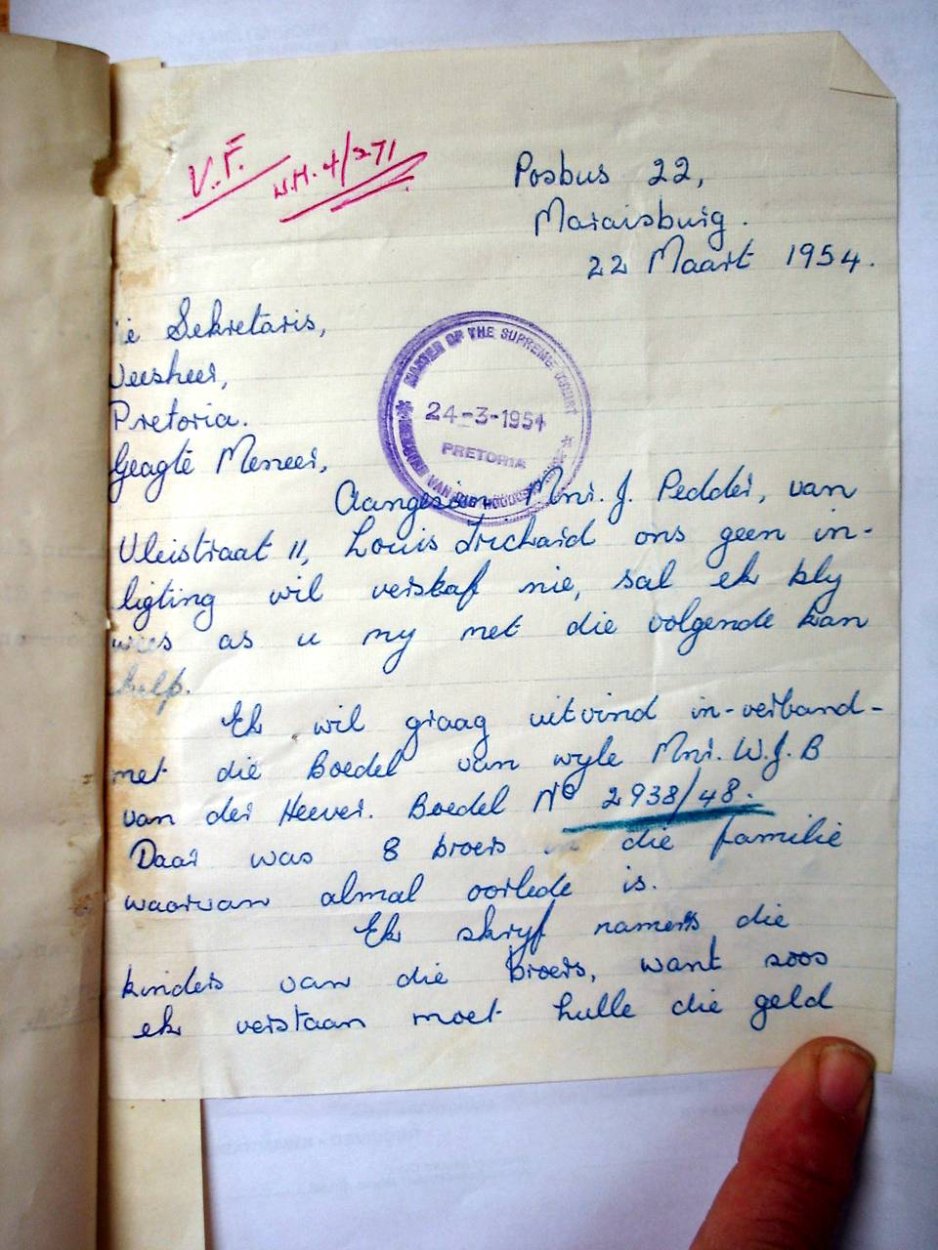 V.F.
W.H. 4/271
Posbus 22,
Maraisburg.
22 Maart 1954.
ie Sekretaris,
Weesheer,
Pretoria.
Geagte Meneer,
MASTER OF THE SUPREME COURT
24-3-1954
PRETORIA
VAN DIE
Aangesien Mnr. J. Pedder, van
Vleistraat 11, Louis Trichard ons geen in-
ligting wil verskaf nie, sal ek bly
wees as u my met die volgende kan
help.
Ek wil graag uitvind in-verband-
met die Boedel van wyle Mnr. W.J.B
van der Heever. Boedel No 2938/48.
Daar was 8 broers in die familie
waarvan almal oorlede is.
Ek skryf namens die
kinders van die broers, want soos
ek verstaan moet hulle die geld